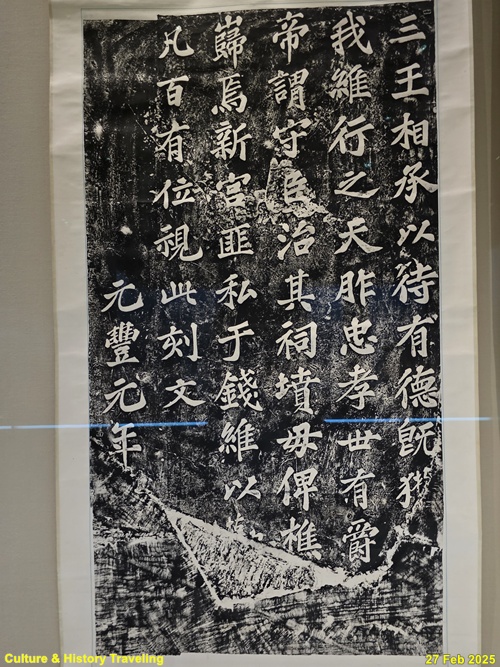 三王相承以待有德既
我維行之天胙忠孝世有爵
帝謂守臣治其祠墳毋俾樵
巋焉新宮匪私于錢維以
凡百有位視此刻文
元豐元年
Culture & History Traveling
27 Feb 2025